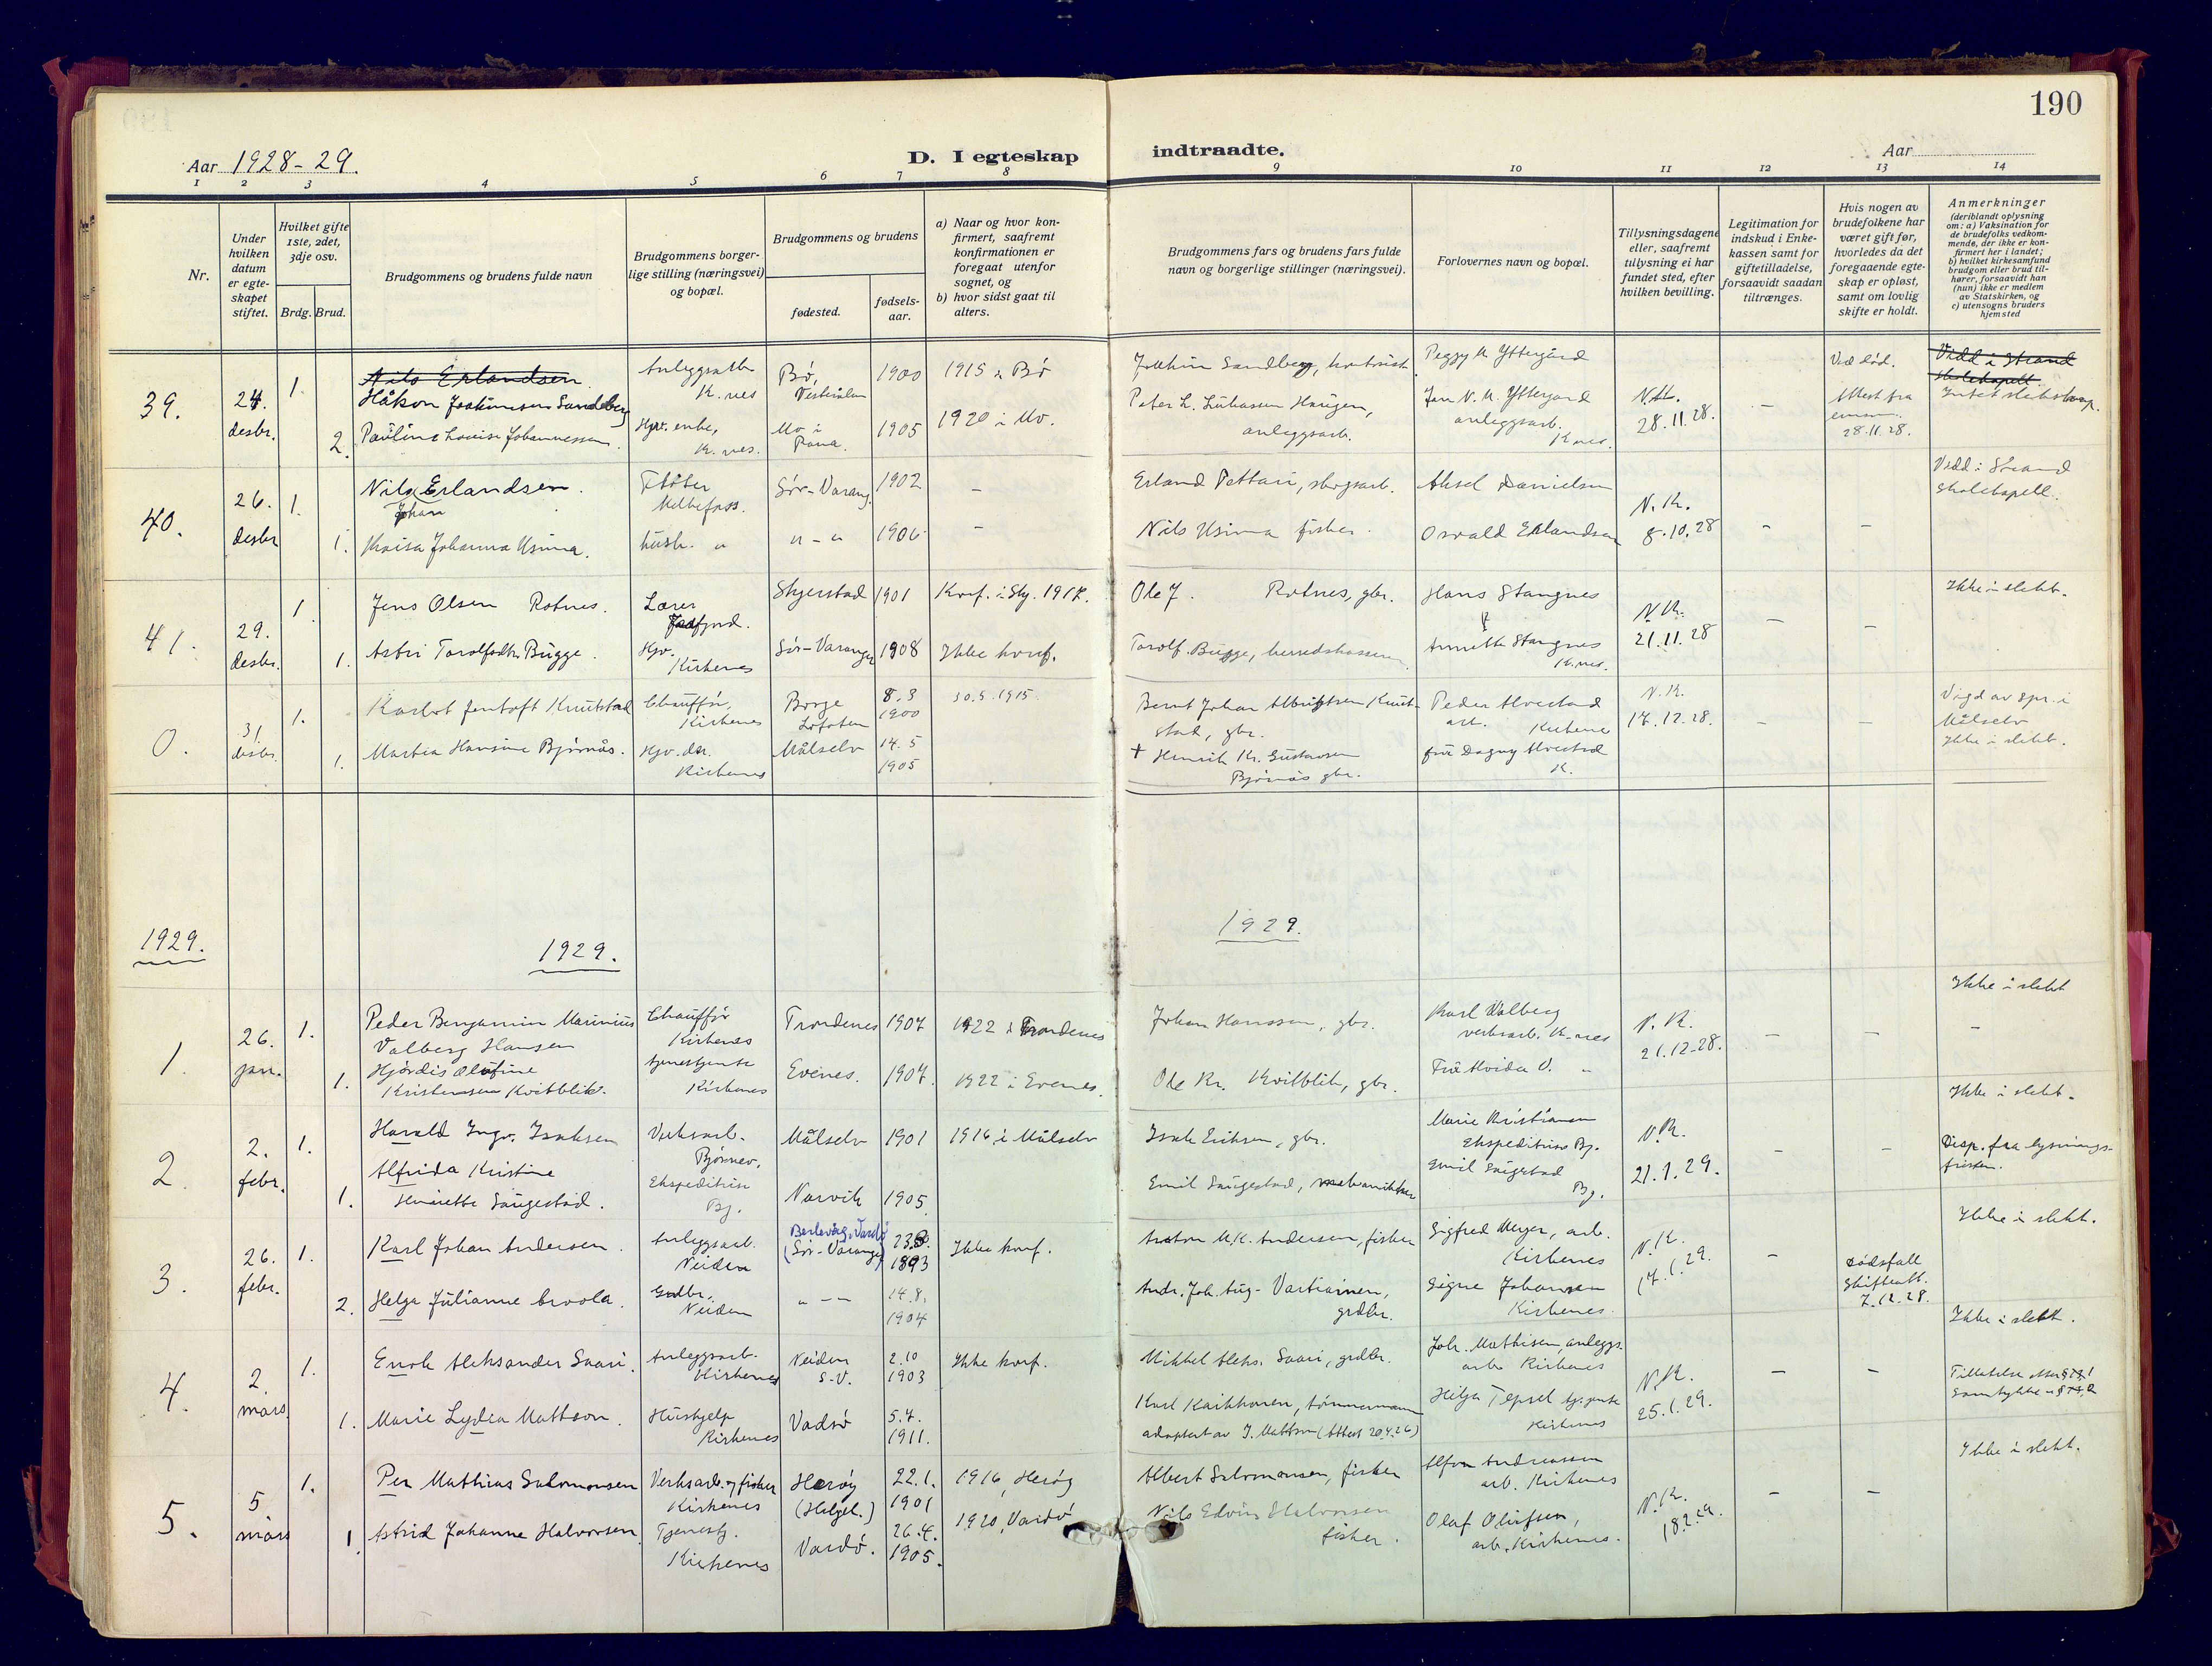 190
Aar 1928-29.
D. I egteskap indtraadte.
Aar
1 2 3 4 5 6 7 8 9 10 11 12 13 14
Nr.
Under hvilken datum er egteskapet stiftet.
Hvilket gifte 1ste, 2det, 3dje osv.
Brdg. Brud.
Brudgommens og brudens fulde navn
Brudgommens borgerlige stilling (næringsvei) og bopæl.
Brudgommens og brudens
fødested.
fødselsaar.
a) Naar og hvor konfirmert, saafremt konfirmationen er foregaat utenfor sognet, og
b) hvor sidst gaat til alters.
Brudgommens fars og brudens fars fulde navn og borgerlige stillinger (næringsvei).
Forlovernes navn og bopæl.
Tillysningsdagene eller, saafremt tillysning ei har fundet sted, efter hvilken bevilling.
Legitimation for indskud i Enkekassen samt for giftetilladelse, forsaavidt saadan tiltrænges.
Hvis nogen av brudefolkene har været gift før, hvorledes da det foregaaende egteskap er opløst, samt om lovlig skifte er holdt.
Anmerkninger
(deriblandt oplysning om: a) Vaksination for de brudefolks vedkommende, der ikke er konfirmert her i landet; b) hvilket kirkesamfund brudgom eller brud tilhører, forsaavidt han (nun) ikke er medlem av Statskirken, og c) utensogns bruders hjemsted
39. 24. desbr. 1. Nils Erlandsen. K.nes Bø, Vesterålen 1900 1915 i Bø
Håkon Joakimsen Sandberg
2. Pauline Louise Johannessen K.nes. Mo i Rana. 1905 1920 i Mo.
Joakim Sandberg, kontorist
Haugen, anleggsarb.
Peggy M Yttergård
Jon N. M. Yttergård anleggsarb. K.nes.
N.K. 28.11.28. –
Ved død.
Attest fra
28.11.28.
Vidd i Strand skolekapell
Intet slektskap.
40. 26. desbr 1. Nils Erlandsen. Johan Fløter Melkefoss. Sør-Varang. 1902 –
1. Kaisa Johanna Usima. hush. " " - " 1906 –
Erland Pettari, skogsarb.
Nils Usima fisker.
Aksel Danielsen
Osvald Erlandsen
N.K. 8.10.28 – –
Vidd i Strand skolekapell.
41. 29. desbr. 1 Jens Olsen Rotnes. Lærer Skjerstad 1901 Konf. i Skj. 1917.
1. Astri Torolfsdtr. Bugge. Hjv. Kirkenes Sør-Varanger 1908 Ikke konf.
Ole J. Rotnes, gbr.
Torolf Bugge, herredskasserer.
Hans Stangnes
Annette Stangnes K.nes.
N.K. 21.11.28 – –
Ikke i slekt.
0. 31. desbr. 1. Karlot Jentoft Knutstad Chauffør, Kirkenes Borge Lofoten 8.3 1900 30.5.1915
1. Martea Hansine Bjørnås. Hjv. dtr. Kirkenes Målselv 14.5 1905
Bernt Johan Albrigtsen Knutstad, gbr.
+ Henrik Kr. Gustavsen Bjørnås gbr.
Peder Alvestad arb. Kirkene
frü Dagny Alvestad K.
N.K. 17.12.28. – –
Vigd av spr. i Målselv
Ikke i slekt.
1929. 1929. 1929.
1. 26. jan. 1. Peder Benjamin Marinius Valberg Hansen Chauffør Kirkenes Trondenes 1907 1922 i Trondenes
1. Hjørdis Olufine Kristensen Kvitblik. tjenestjente Kirkenes Evenes. 1907. 1922 i Evenes.
Johan Hanssen, gbr.
Ole Kr. Kvitblik, gbr.
Karl Valberg verksarb. K.nes
Frü Alvida V. "
N.K. 21.12.28. – – –
Ikke i slekt
2. 2. febr. 1. Harald Ingv. Isaksen Verksarb. Bjørnev. Målselv 1901 1916 i Målselv
1. Alfrida Kristine Henriette Saugestad. Ekspeditrise Bj. Narvik 1905.
Isak Eriksen, gbr.
Emil Saugestad, mekanikker
Marie Kristiansen Ekspeditrise Bj.
Emil Saugestad Bj.
N.K. 21.1.29. – –
Ikke i slekt.
Disp. fra lysningsfristen.
3. 26. febr. 1. Karl Johan Andersen. Anleggsarb. Neiden Berlevåg, Vardø (Sør-Varanger) 23.8. 1893 Ikke konf.
2. Helga Julianne Arvola. Grdbr. Neiden " – – 14.8. 1904
Anton M.K. Andersen, fisker
Andr. Joh. Aug. Vartiainen, grdbr.
Sigfred Meyer, arb. Kirkenes
Signe Johansen Kirkenes.
N.K. 17.1.29. –
Dødsfall Skifteatt. 7.12.28.
Ikke i slekt.
4. 2. mars. 1. Enok Aleksander Saari. Anleggsarb. Kirkenes Neiden S-V. 2.10 1903 Ikke konf.
1. Marie Lydia Mattson. Hushjelp Kirkenes Vadsø 5.7. 1911.
Mikkel Aleks. Saari, grdbr.
Karl Kaikkonen, tømmermann
adoptert av J. Mattson (Attest 20.4.26)
Joh. Mathisen, anleggsarb. Kirkenes
Helga Tepsel tj.jente Kirkenes
N.K. 25.1.29. – –
Ikke i slekt.
5. 5 mars 1. Per Mathias Salomonsen Verksarb. og fisker Kirkenes Herøy (Helgel.) 22.1. 1901 1916, Herøy
1. Astrid Johanne Halvorsen. Tjenestj. Kirkenes Vardø. 26.4. 1905. 1920, Vardø
Albert Salomonsen, fisker
Nils Edvin Halvorsen fisker.
Alfon Andreassen arb. Kirkenes
Olaf Olufsen, arb. Kirkenes.
N.K. 18.2.29. – –
Ikke i slekt.